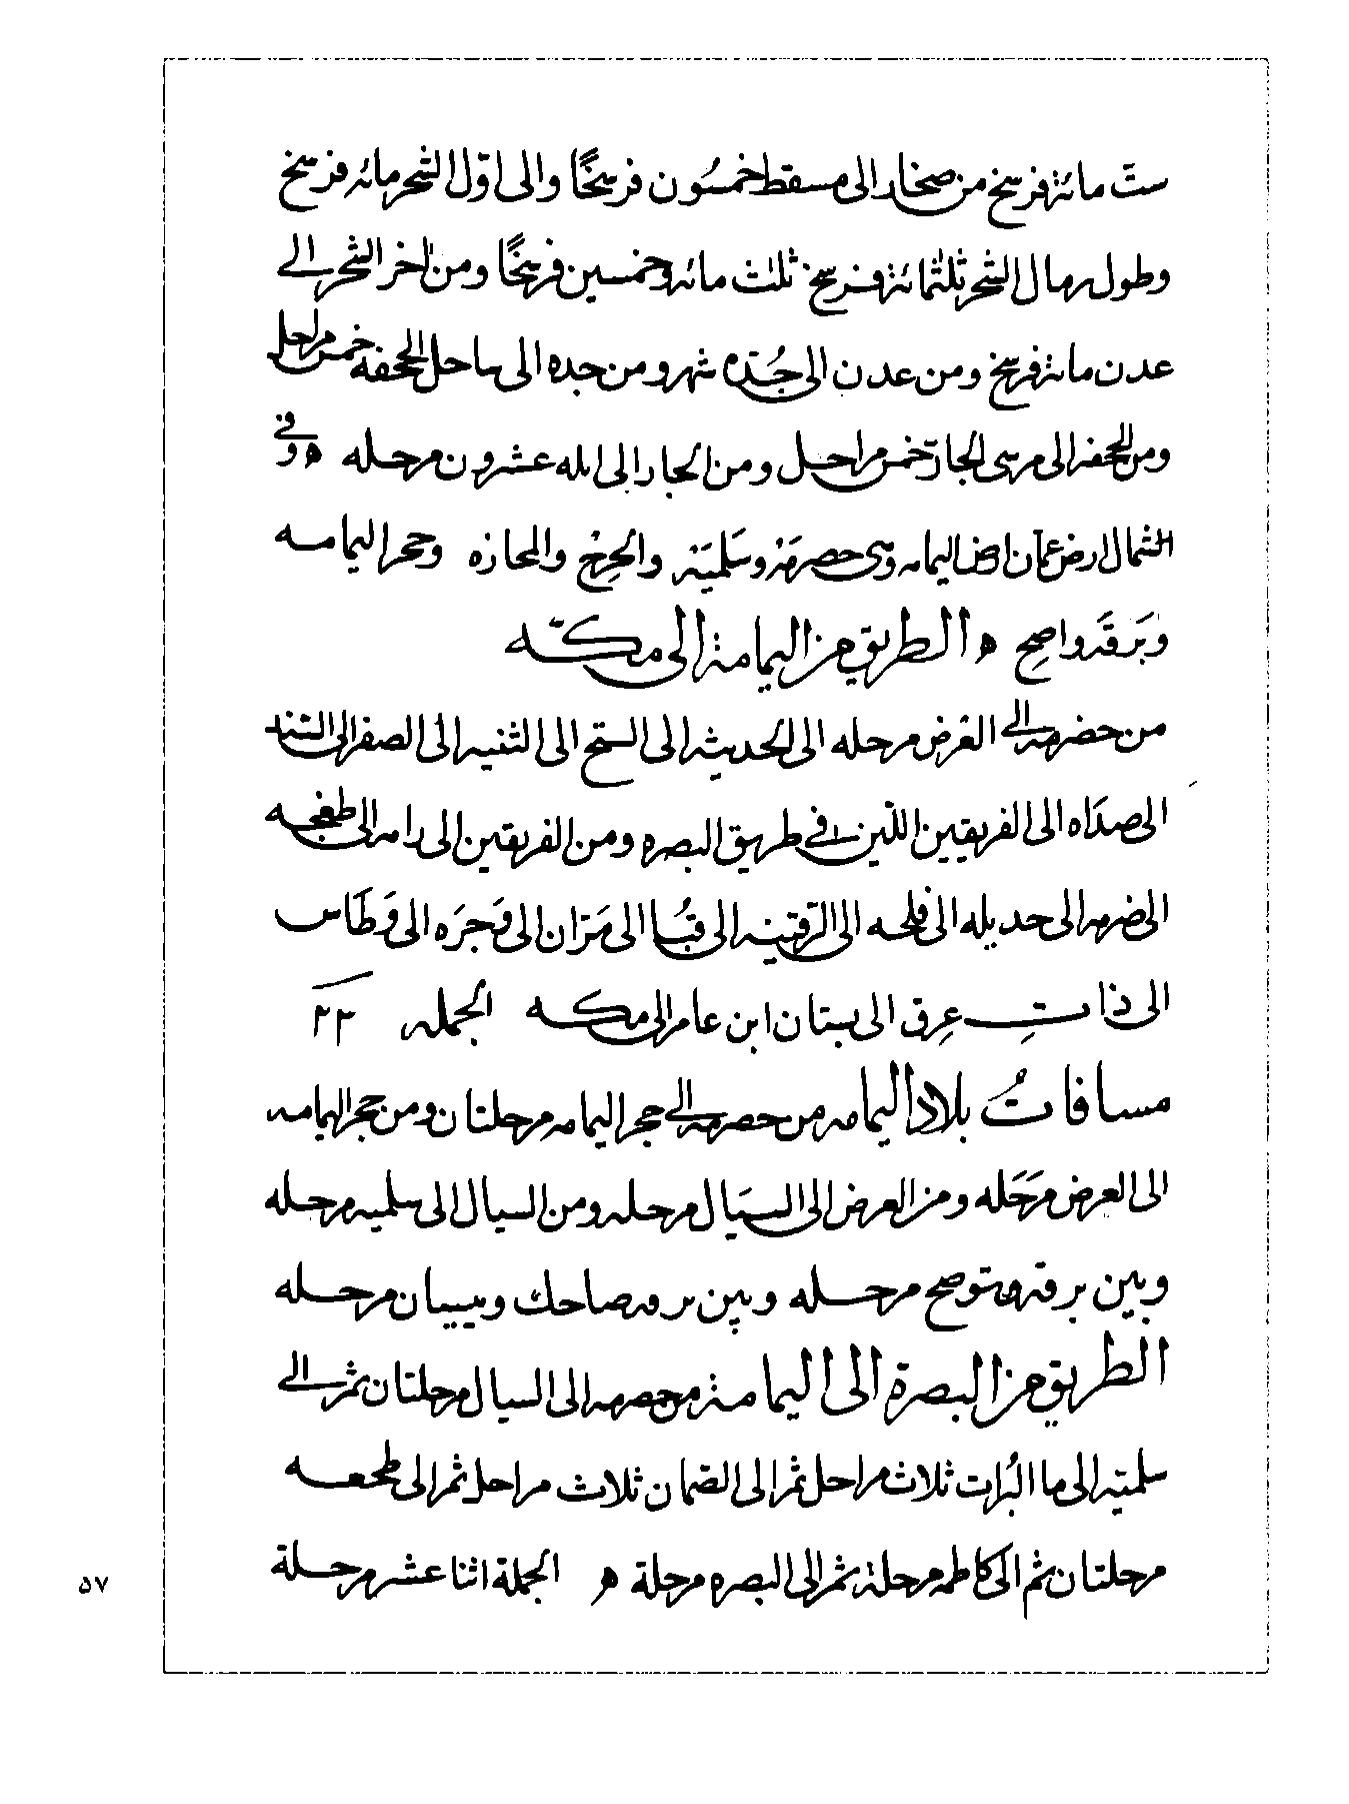 ستّ مائة فرسخ من صحار الى مسقط خمسُون فرسخًا والى اوّل الشحر مائه فرسخ
وطول رمال الشحر ثلثمائة فرسخ ثلث مائه وخمسين فرسخًا ومن اخر الشحر الى
عدن مائة فرسخ ومن عدن الى جُدّه شهر ومن جده الى ساحل الجحفة خمس مراحل
ومن الجحفه الى مرسى الجار خمس مراحل ومن الجار الى ايله عشرون مرحله ه وفى
الشمال ارض عمان ارض اليمامه وهى حضرمَة وسَلميَة والخِرْج والمجازه وحجر اليمامه
وبَرقَه واضِح ه الطريق من اليمامة الى مكّه
من حضرمه الى العُرض مرحله الى الحديثه الى السّيح الى الثنيه الى الصفر الى السّد
الى صدَاه الى الفريقين اللّتين فى طريق البصره ومن الفريقين الى رامه الى طخفه
الى ضريه الى جديله الى فلجه الى الرّقتينه الى قُبا الى مَرّان الى وَجرَه الى وَطَاس
الى ذات عِرق الى بستان ابن عامر الى مكه الجمله ٢٢
مسافاتُ بلاد اليمامه من حضرمه الى حجر اليمامه مرحلتان ومن حجر اليمامه
الى العرض مَرحَله ومن العرض الى السيَال مرحله ومن السيال الى سلميه مرحله
وبين برقه توضح مرحله وبين برقه ضاحك وبيسان مرحله
الطريق من البصرة الى اليمامة من حضرمه الى السيال مرحلتان ثم الى
سلميّه الى ما البُرات ثلاث مراحل ثم الى الضمان ثلاث مراحل ثم الى طخفه
مرحلتان ثم الى كاظمه مرحلة ثم الى البصره مرحلة ه الجملة اثنا عشر مرحلة
٥٧